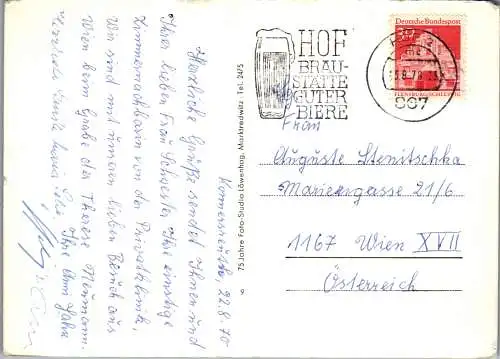 Konnersreuth, 22.8.70
Herzliche Grüße sendet Ihnen und
Ihrer lieben Frau Schwester Ihre einstige
Zimmernachbarin von der Privatklinik,
Wir sind mit unserem lieben Besuch aus
Wien beim Grabe der Therese Neumann.
Ihre Anni
75 Jahre Foto-Studio Löwenhag, Marktredwitz Tel. 2475
HOF
BRÄU-
STÄTTE
GUTER
BIERE
Deutsche Bundespost
30
FLENSBURG/SCHLESWIG
867
Frau
Auguste Stenitschka
Mariengasse 21/6
1167 Wien XVII
Österreich